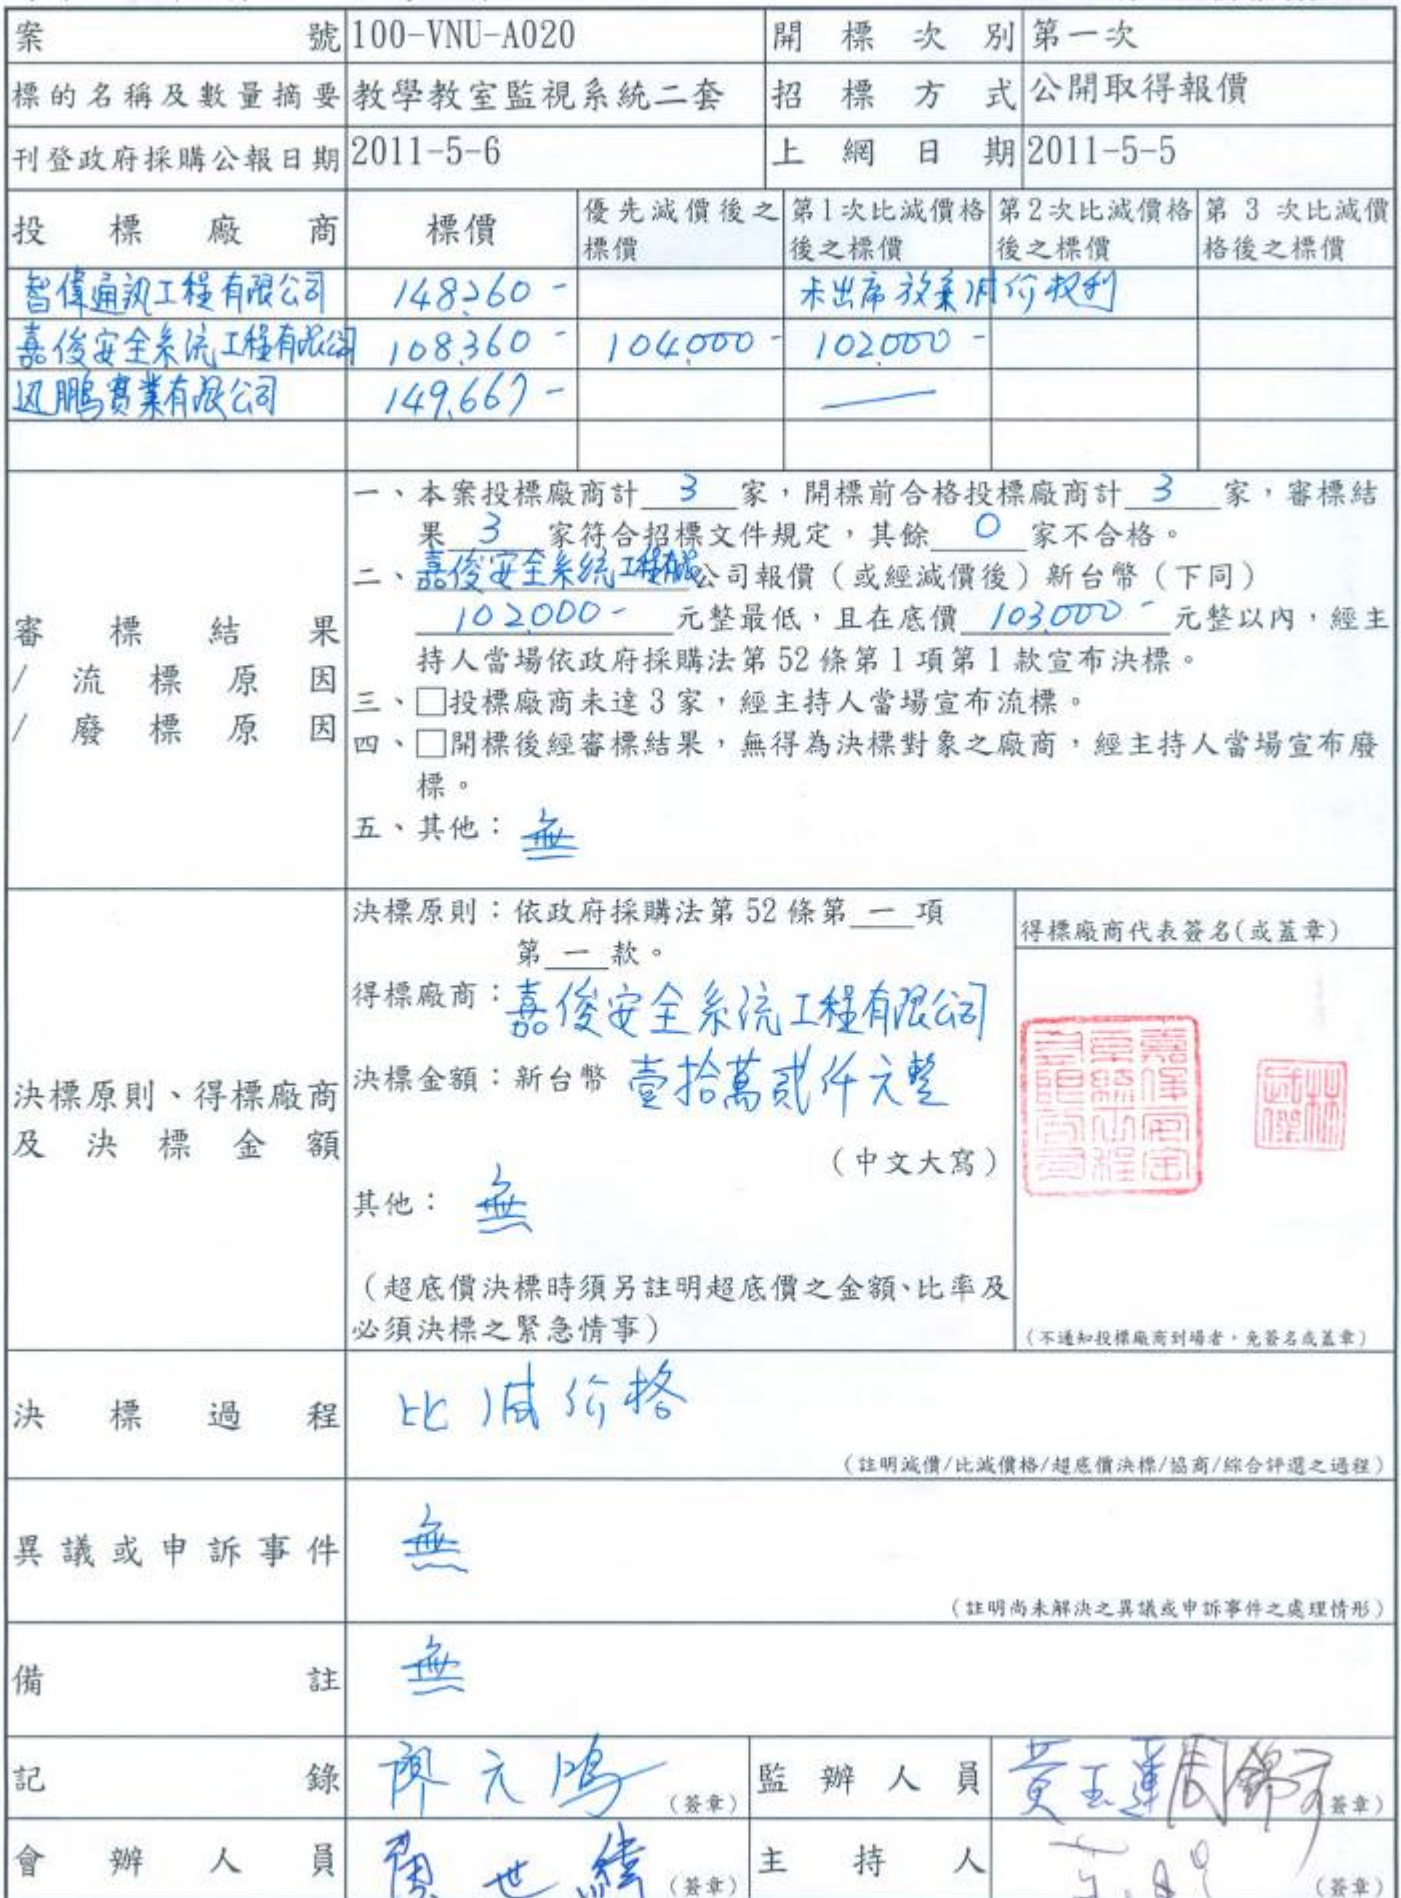 案號 100-VNU-A020 開標次別 第一次
標的名稱及數量摘要 教學教室監視系統二套 招標方式 公開取得報價
刊登政府採購公報日期 2011-5-6 上網日期 2011-5-5
投標廠商 標價 優先減價後之標價 第1次比減價格後之標價 第2次比減價格後之標價 第3次比減價格後之標價
智偉通訊工程有限公司 148,260- 未出席放棄減价权利
嘉俊安全系統工程有限公司 108,360- 104,000- 102,000-
迅鵬實業有限公司 149,667- —
審標結果
/流標原因
/廢標原因
一、本案投標廠商計 3 家，開標前合格投標廠商計 3 家，審標結
果 3 家符合招標文件規定，其餘 0 家不合格。
二、嘉俊安全系統工程有限公司報價（或經減價後）新台幣（下同）
102,000- 元整最低，且在底價 103,000- 元整以內，經主
持人當場依政府採購法第 52 條第 1 項第 1 款宣布決標。
三、□投標廠商未達 3 家，經主持人當場宣布流標。
四、□開標後經審標結果，無得為決標對象之廠商，經主持人當場宣布廢
標。
五、其他：無
決標原則、得標廠商
及決標金額
決標原則：依政府採購法第 52 條第 一 項
第 一 款。
得標廠商：嘉俊安全系統工程有限公司
決標金額：新台幣 壹拾萬貳仟元整
（中文大寫）
其他：無
（超底價決標時須另註明超底價之金額、比率及
必須決標之緊急情事）
得標廠商代表簽名(或蓋章)
嘉俊安全系統工程有限公司
（不通知投標廠商到場者，免簽名或蓋章）
決標過程 比減价格
（註明減價/比減價格/超底價決標/協商/綜合評選之過程）
異議或申訴事件 無
（註明尚未解決之異議或申訴事件之處理情形）
備註 無
記錄 廖元鳴 （簽章） 監辦人員 黃玉蓮 周錦 （簽章）
會辦人員 世 （簽章） 主持人 （簽章）